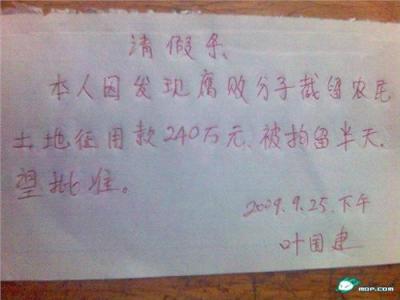 请假条
本人因发现腐败分子截留农民
土地征用款240万元、被拘留半天.
望批准。
2009.9.25.下午
叶国建
MOP.COM